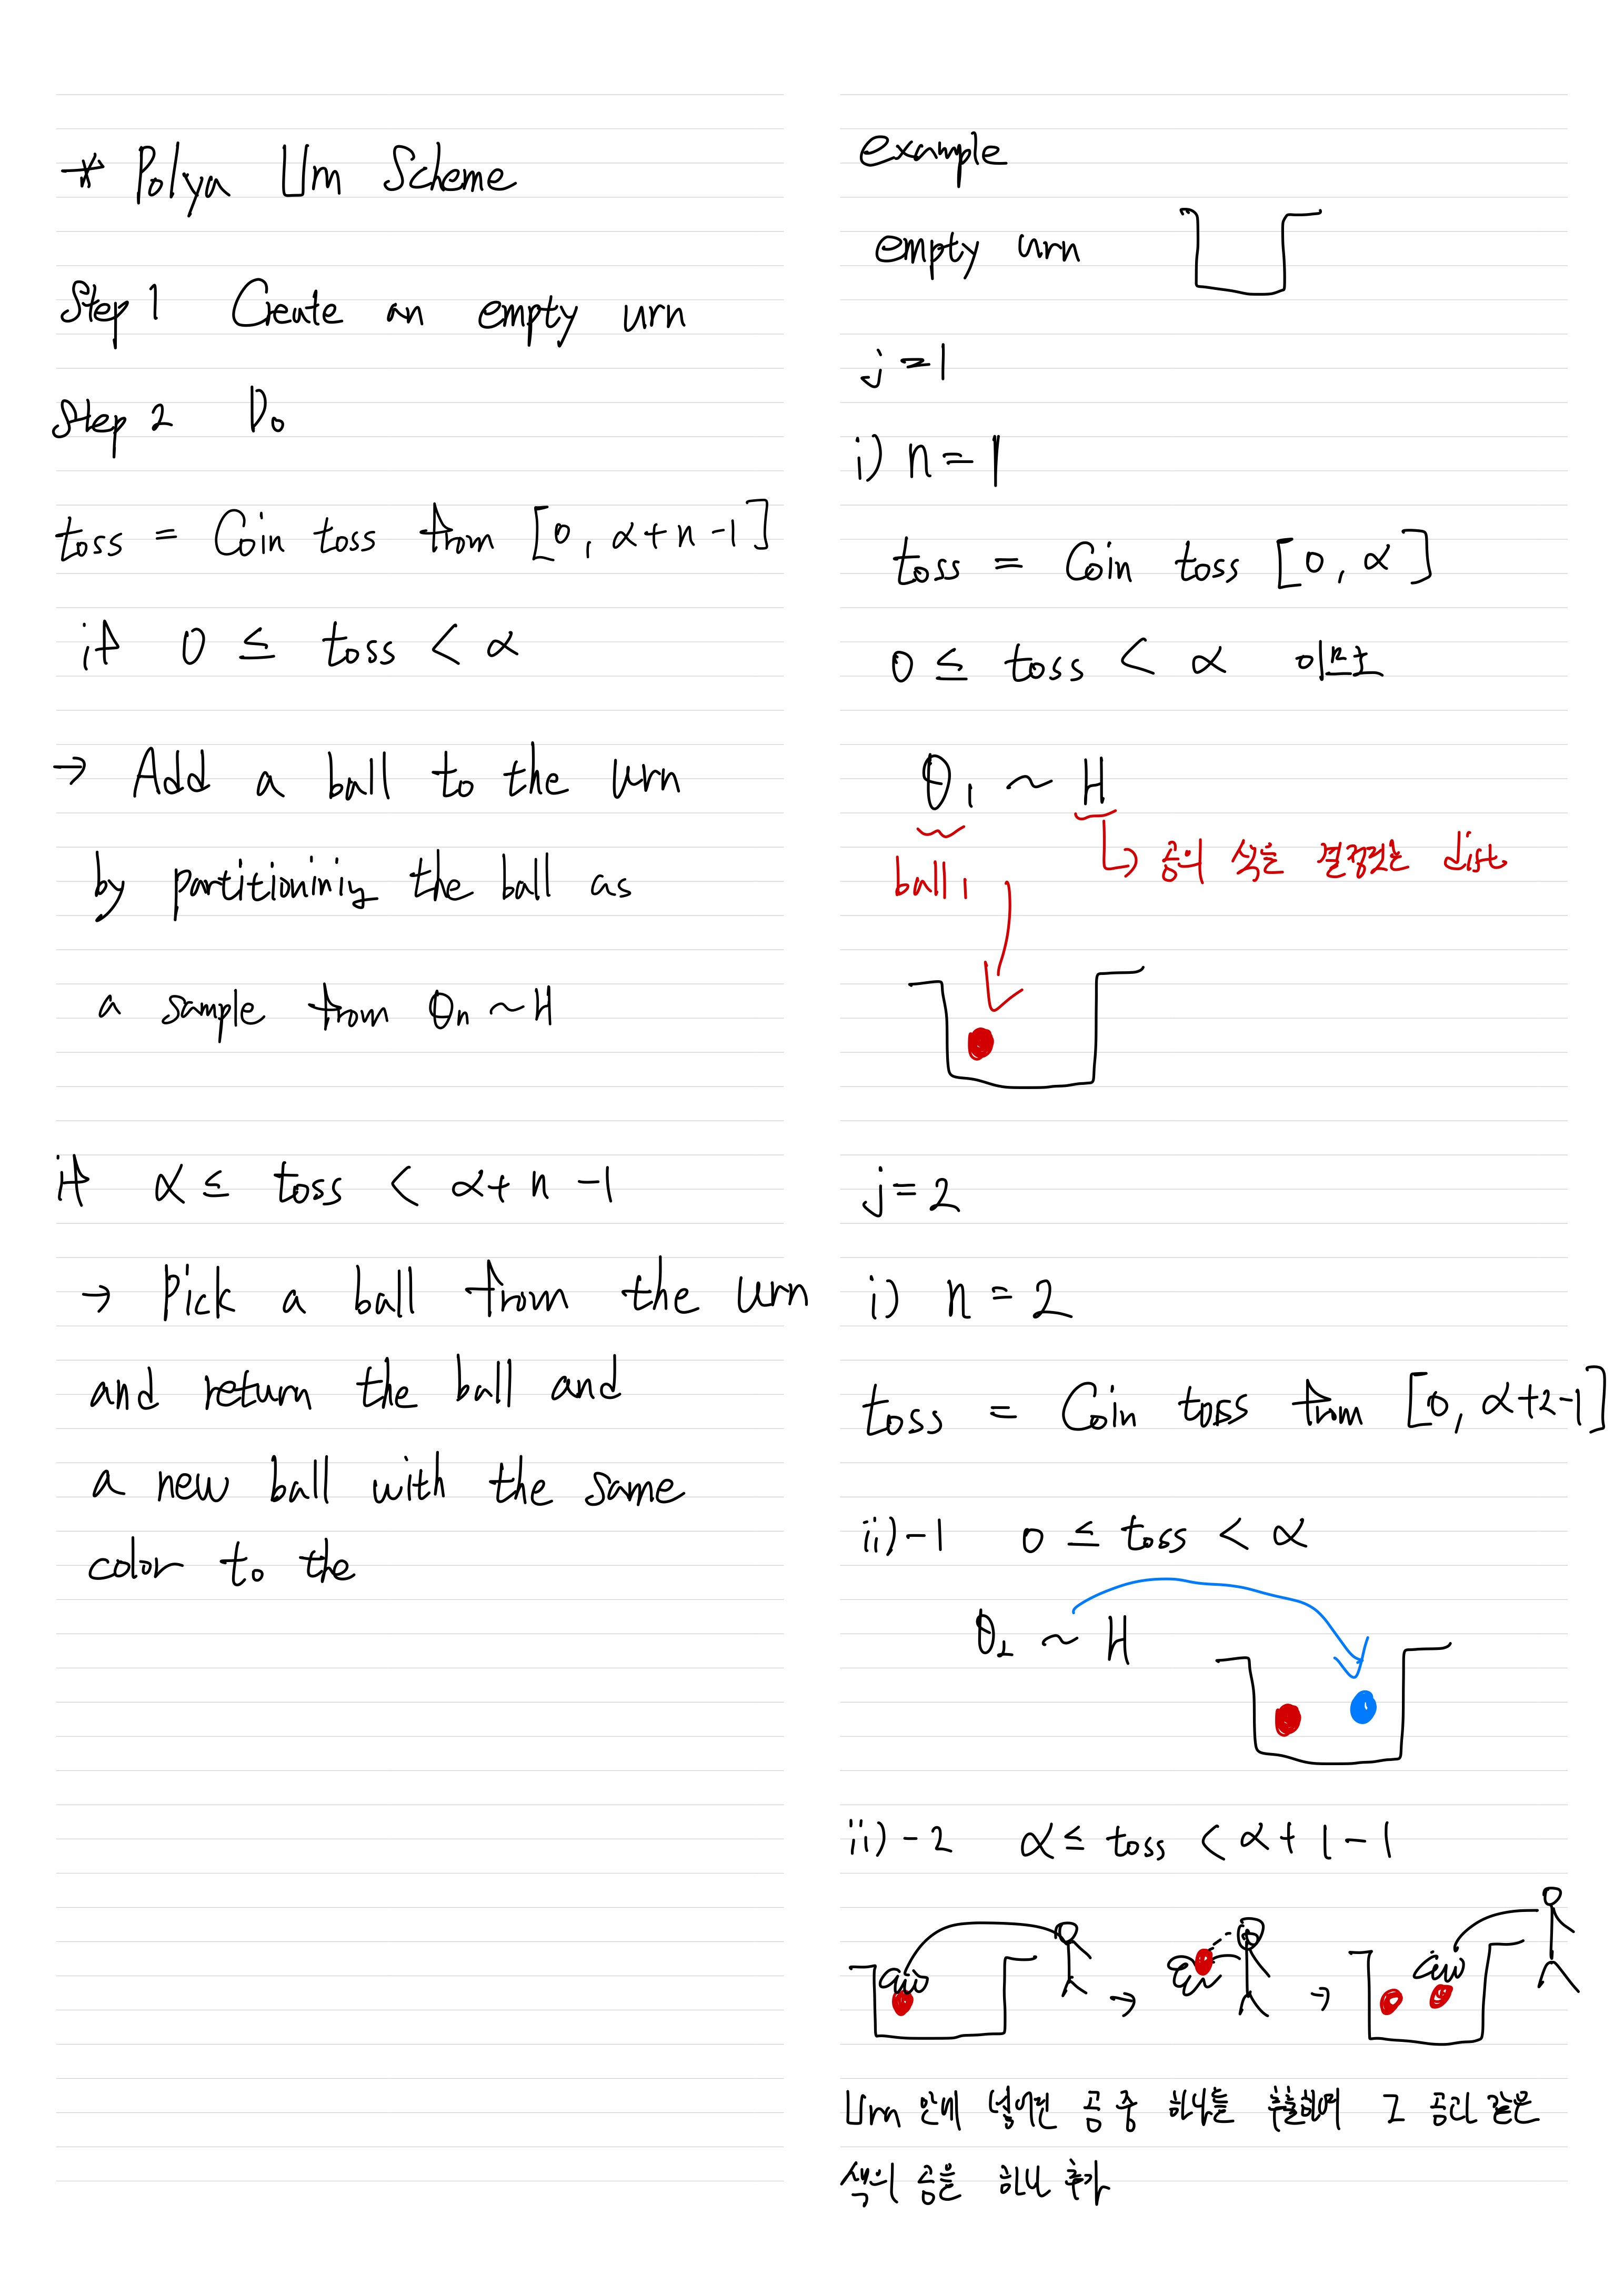 * Polya Urn Scheme
Step 1 Create an empty urn
Step 2 Do
toss = Coin toss from [0, α+n-1]
if 0 ≤ toss < α
→ Add a ball to the urn
by partitioninig the ball as
a sample from θn ~ H
if α ≤ toss < α+n-1
→ Pick a ball from the urn
and return the ball and
a new ball with the same
color to the
example
empty urn
j=1
i) n=1
toss = Coin toss [0, α]
0 ≤ toss < α 이므로
θ1 ~ H
ball1 → 공의 색을 결정짓는 dist
j=2
i) n=2
toss = Coin toss from [0, α+2-1]
ii)-1 0 ≤ toss < α
θ2 ~ H
ii)-2 α ≤ toss < α+1-1
→ →
Urn 안에 넣어진 공 중 하나를 추출하며 그 공과 같은
색의 공을 하나 추가